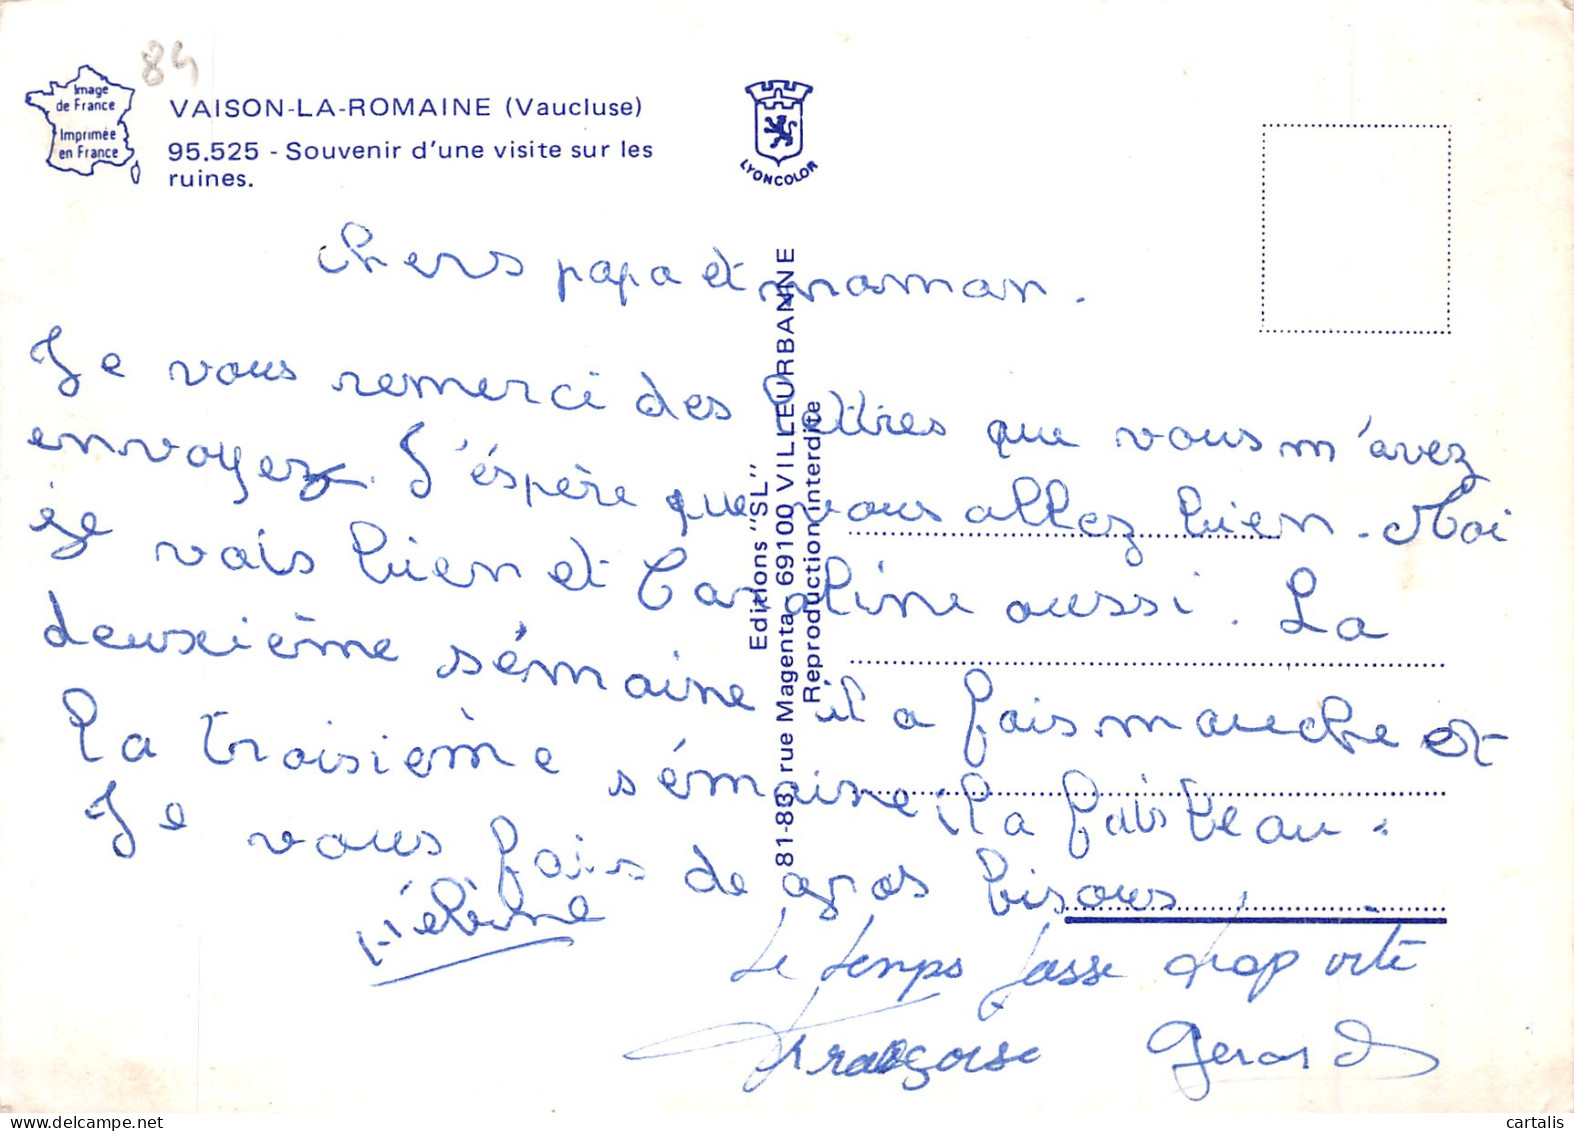 84
Image
de France
Imprimée
en France
VAISON-LA-ROMAINE (Vaucluse)
95.525 - Souvenir d'une visite sur les
ruines.
LYONCOLOR
Editions "SL"
81-83, rue Magenta - 69100 VILLEURBANNE
Reproduction interdite
Chers papa et maman.
Je vous remerci des lettres que vous m'avez
envoyez. J'éspère que vous allez bien. Moi
je vais bien et Caroline aussi. La
deuxième sémaine il a fais mauche et
la troisième sémaine il a fais beau.
Je vous fais de gros bisous.
Hélène
Le temps passe trop vite
Françoise Gerard
cartalis